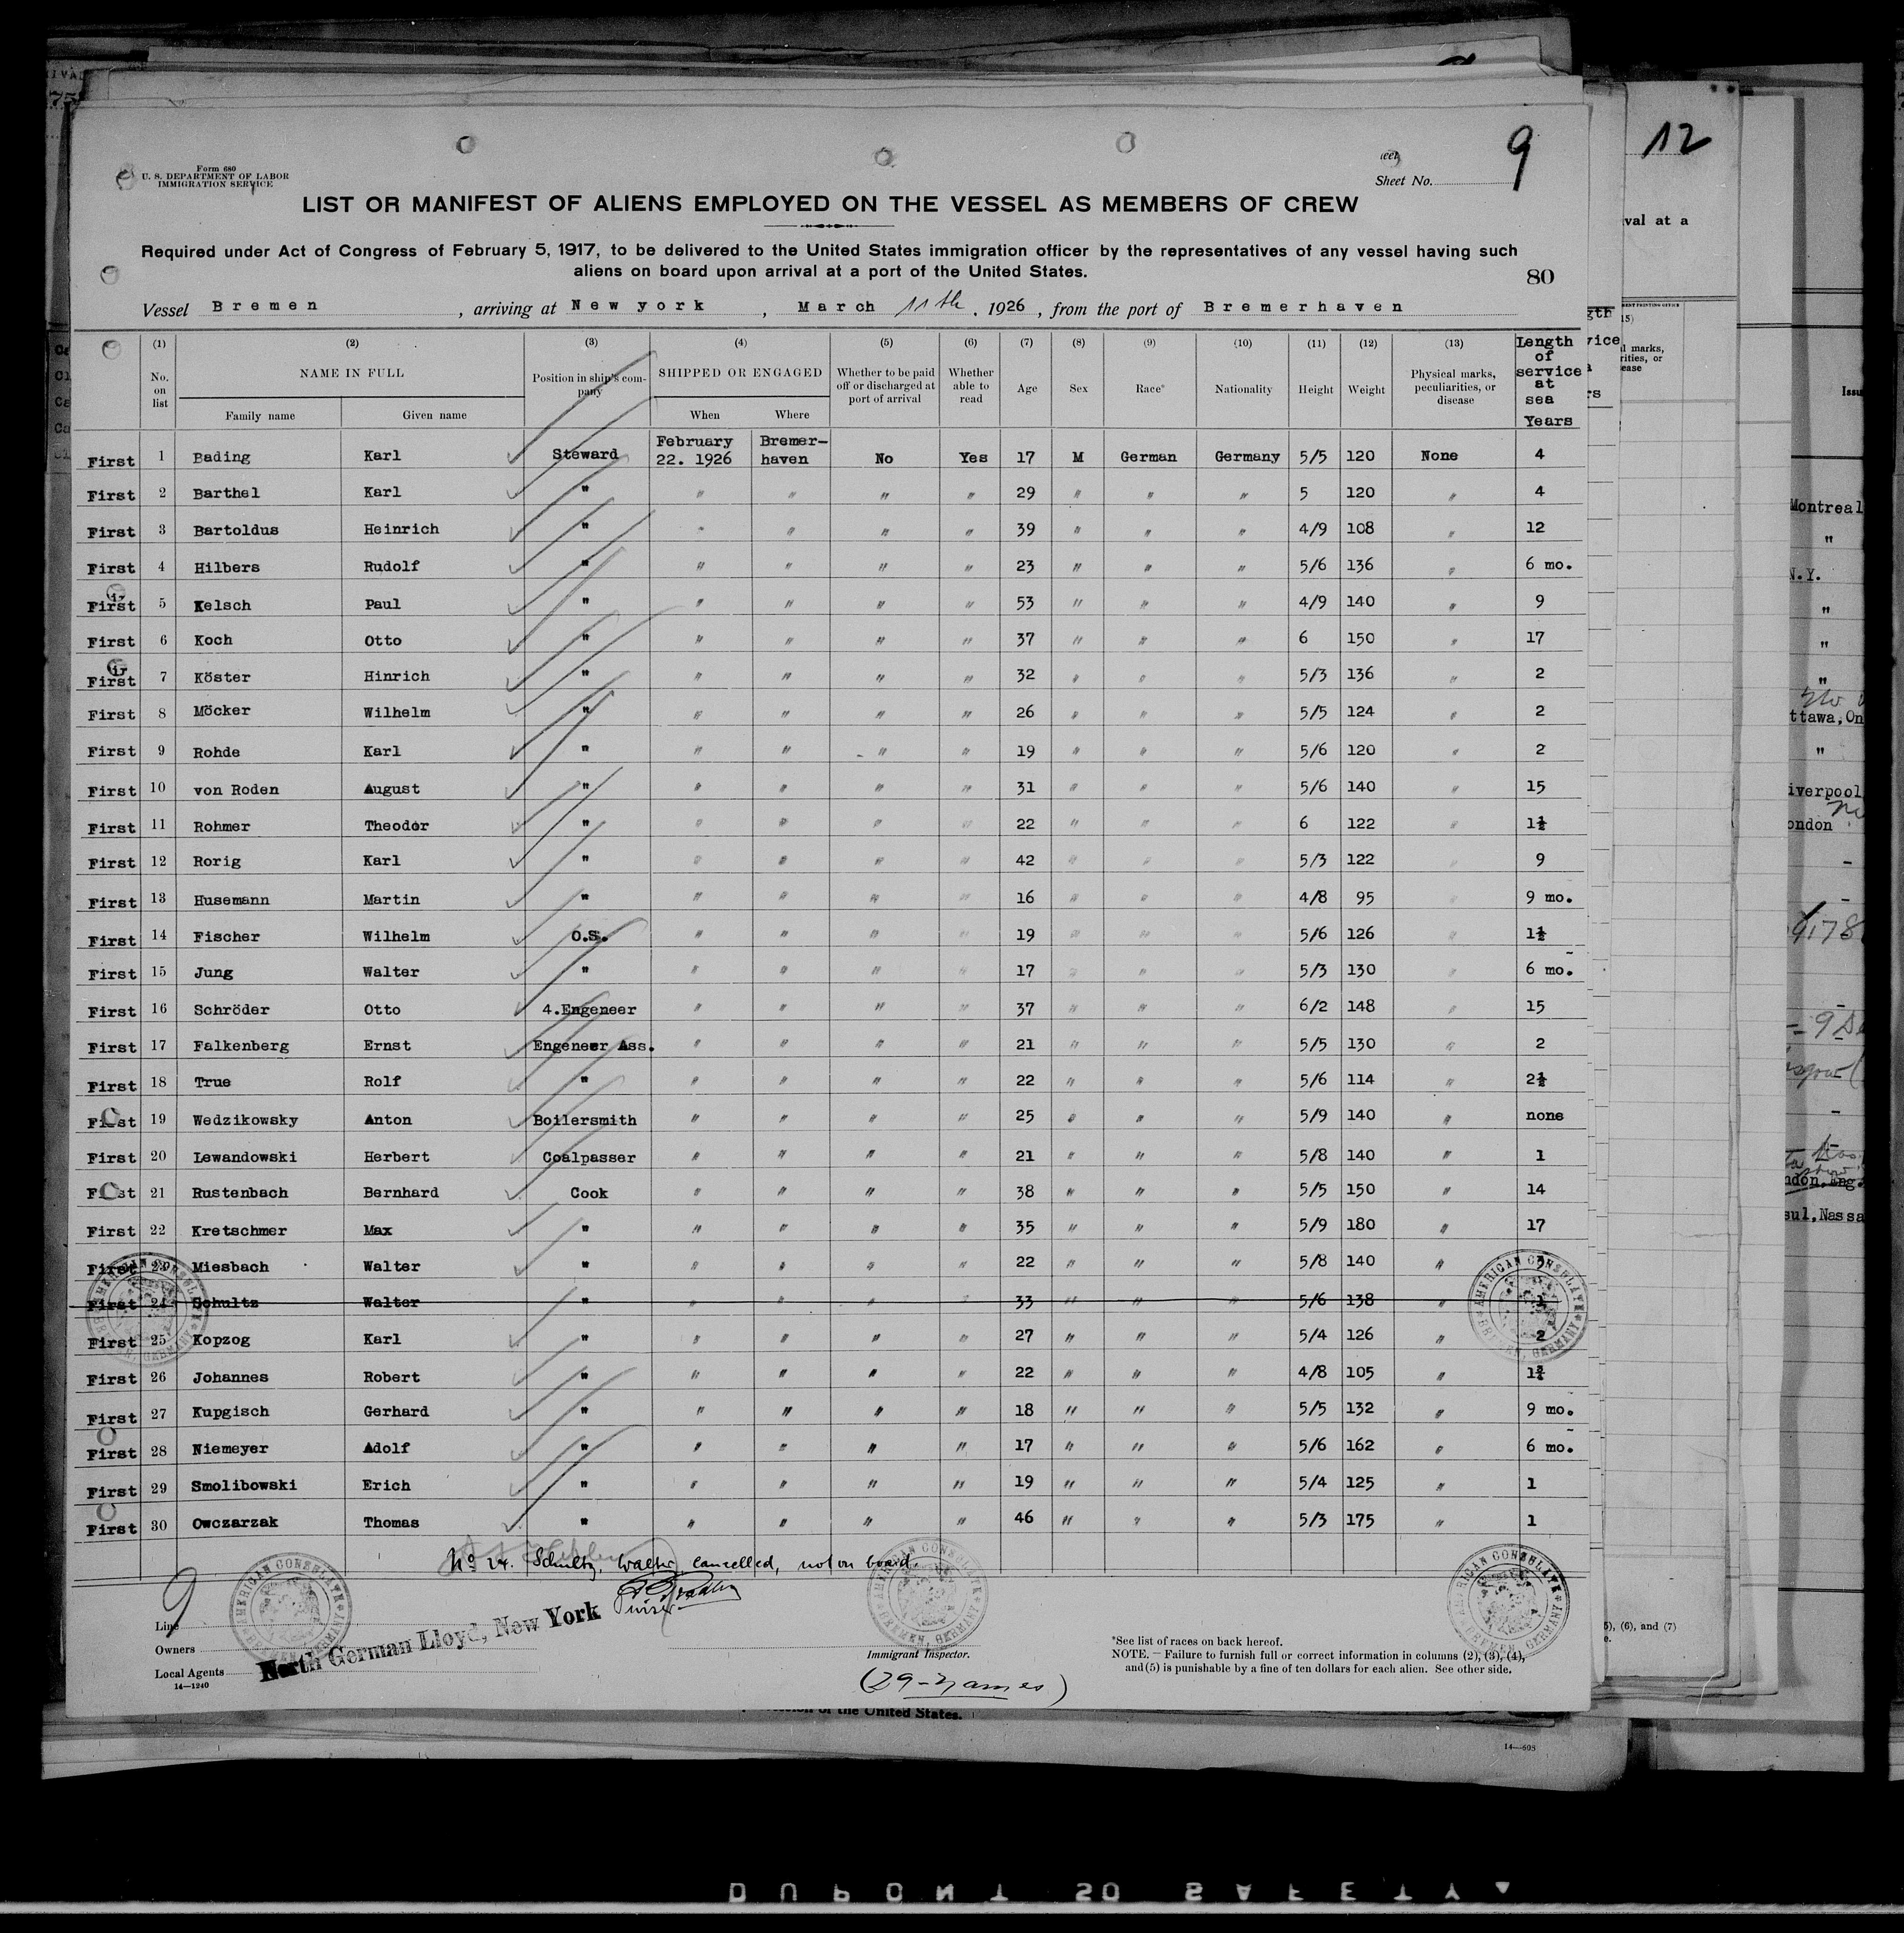 12
9
Form 680
U. S. DEPARTMENT OF LABOR
IMMIGRATION SERVICE
Sheet No.
LIST OR MANIFEST OF ALIENS EMPLOYED ON THE VESSEL AS MEMBERS OF CREW
Required under Act of Congress of February 5, 1917, to be delivered to the United States immigration officer by the representatives of any vessel having such
aliens on board upon arrival at a port of the United States.
80
Vessel Bremen, arriving at New york, March 11th, 1926, from the port of Bremerhaven
(1) (2) (3) (4) (5) (6) (7) (8) (9) (10) (11) (12) (13)
No. on list NAME IN FULL Family name Given name Position in ship's company SHIPPED OR ENGAGED When Where Whether to be paid off or discharged at port of arrival Whether able to read Age Sex Race* Nationality Height Weight Physical marks, peculiarities, or disease Length of service at sea Years
First 1 Bading Karl Steward February 22. 1926 Bremer-haven No Yes 17 M German Germany 5/5 120 None 4
First 2 Barthel Karl " " " " " 29 " " " 5 120 " 4
First 3 Bartoldus Heinrich " " " " " 39 " " " 4/9 108 " 12
First 4 Hilbers Rudolf " " " " " 23 " " " 5/6 136 " 6 mo.
First 5 Kelsch Paul " " " " " 53 " " " 4/9 140 " 9
First 6 Koch Otto " " " " " 37 " " " 6 150 " 17
First 7 Köster Hinrich " " " " " 32 " " " 5/3 136 " 2
First 8 Möcker Wilhelm " " " " " 26 " " " 5/5 124 " 2
First 9 Rohde Karl " " " " " 19 " " " 5/6 120 " 2
First 10 von Roden August " " " " " 31 " " " 5/6 140 " 15
First 11 Rohmer Theodor " " " " " 22 " " " 6 122 " 1½
First 12 Rorig Karl " " " " " 42 " " " 5/3 122 " 9
First 13 Husemann Martin " " " " " 16 " " " 4/8 95 " 9 mo.
First 14 Fischer Wilhelm O.S. " " " " 19 " " " 5/6 126 " 1½
First 15 Jung Walter " " " " " 17 " " " 5/3 130 " 6 mo.
First 16 Schröder Otto 4.Engeneer " " " " 37 " " " 6/2 148 " 15
First 17 Falkenberg Ernst Engeneer Ass. " " " " 21 " " " 5/5 130 " 2
First 18 True Rolf " " " " " 22 " " " 5/6 114 " 2½
First 19 Wedzikowsky Anton Boilersmith " " " " 25 " " " 5/9 140 " none
First 20 Lewandowski Herbert Coalpasser " " " " 21 " " " 5/8 140 " 1
First 21 Rustenbach Bernhard Cook " " " " 38 " " " 5/5 150 " 14
First 22 Kretschmer Max " " " " " 35 " " " 5/9 180 " 17
First 23 Miesbach Walter " " " " " 22 " " " 5/8 140 " 2
First 24 Schultz Walter " " " " " 33 " " " 5/6 138 " 1
First 25 Kopzog Karl " " " " " 27 " " " 5/4 126 " 2
First 26 Johannes Robert " " " " " 22 " " " 4/8 105 "
First 27 Kupgisch Gerhard " " " " " 18 " " " 5/5 132 " 9 mo.
First 28 Niemeyer Adolf " " " " " 17 " " " 5/6 162 " 6 mo.
First 29 Smolibowski Erich " " " " " 19 " " " 5/4 125 " 1
First 30 Owczarzak Thomas " " " " " 46 " " " 5/3 175 " 1
No 24. Schultz, Walter, cancelled, not on board.
Purser
9
Line
Owners
Local Agents
14—1240
North German Lloyd, New York
AMERICAN CONSULATE BREMEN, GERMANY
Immigrant Inspector.
(29 - Names)
*See list of races on back hereof.
NOTE. — Failure to furnish full or correct information in columns (2), (3), (4),
and (5) is punishable by a fine of ten dollars for each alien. See other side.
of the United States.
14—693
val at a
Montreal
N.Y.
DUPONT SO SAFETY